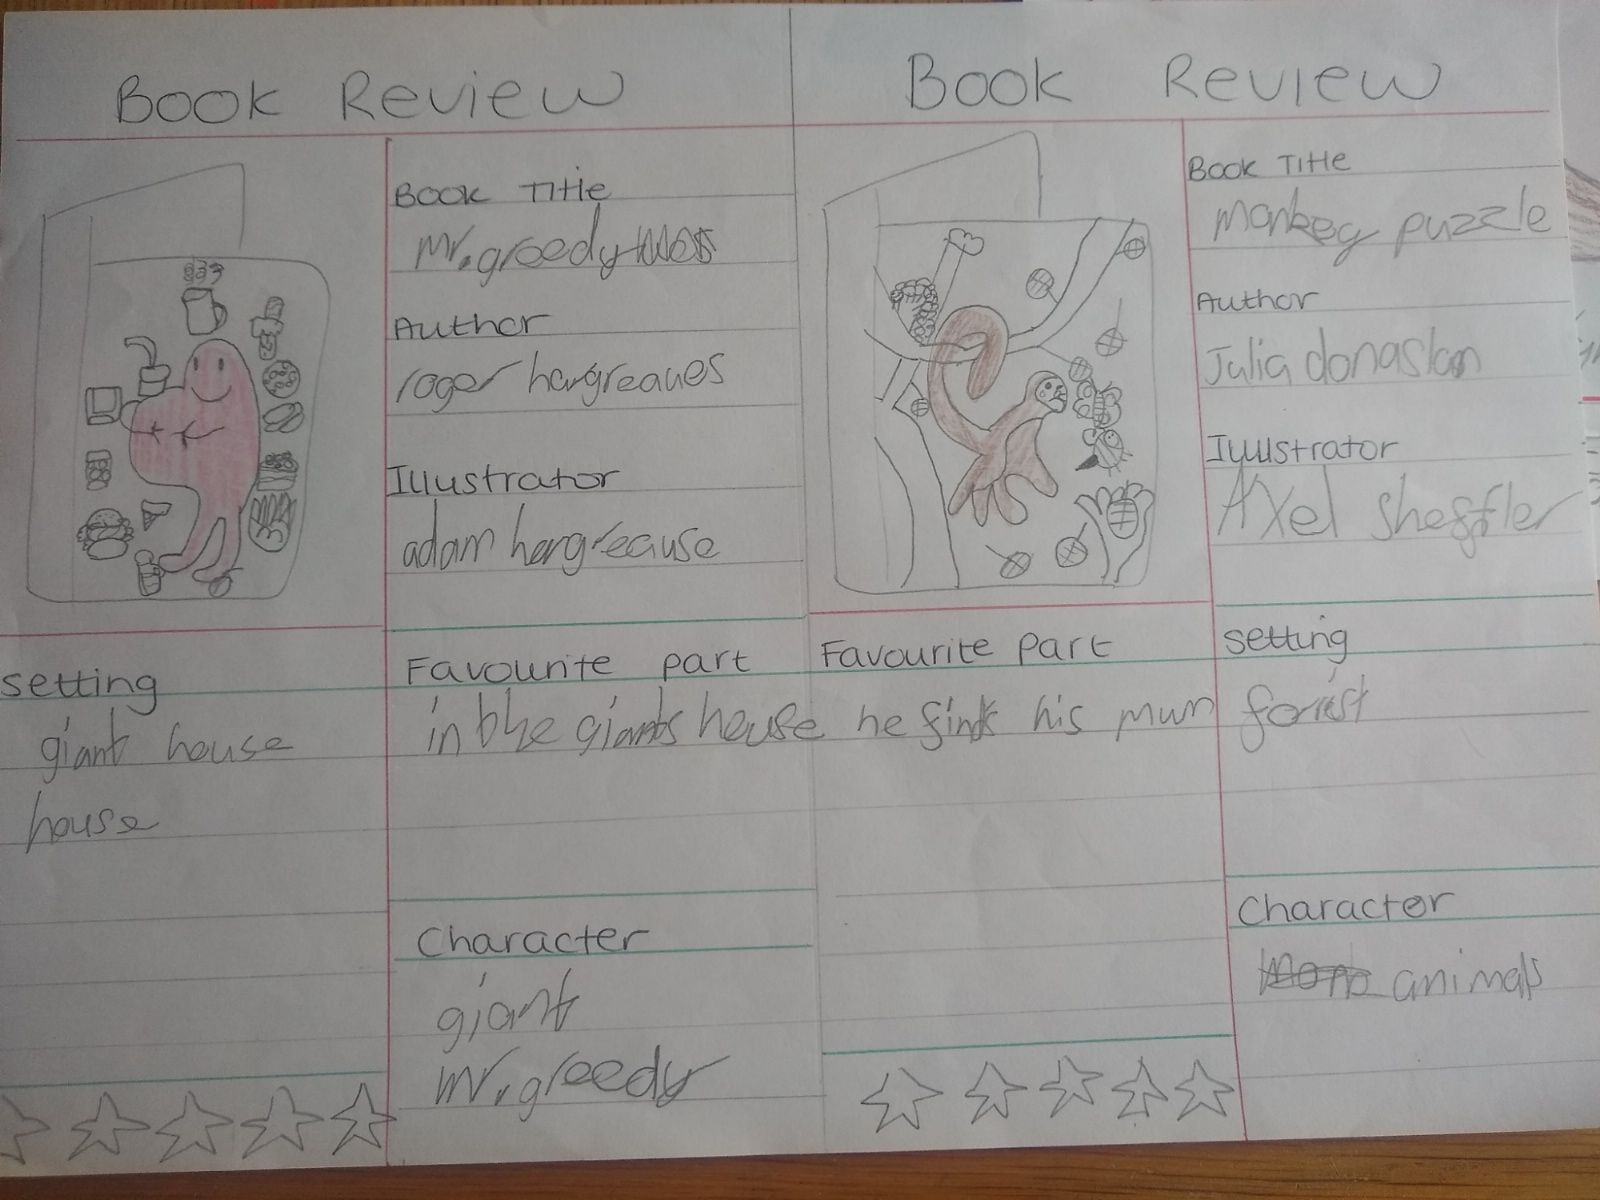 Book Review
Book Title
mr.greedy
Author
roger hargreaves
Illustrator
adam hargreause
setting
giant house
house
Favourite part
in the giants house
Character
giant
mr.greedy
Book Review
Book Title
monkey puzzle
Author
Julia donaslan
Illustrator
Axel sheffler
Favourite part
he finds his mum
setting
forist
Character
animals